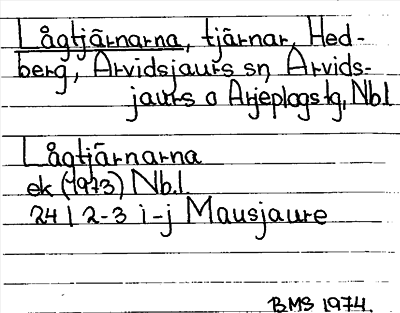 Lågtjärnarna, tjärnar, Hed-
berg, Arvidsjaurs sn, Arvids-
jaurs o Arjeplogs tg, Nbl
Lågtjärnarna
ek (1973) Nbl.
24 I 2-3 i-j Mausjaure
BMS 1974.